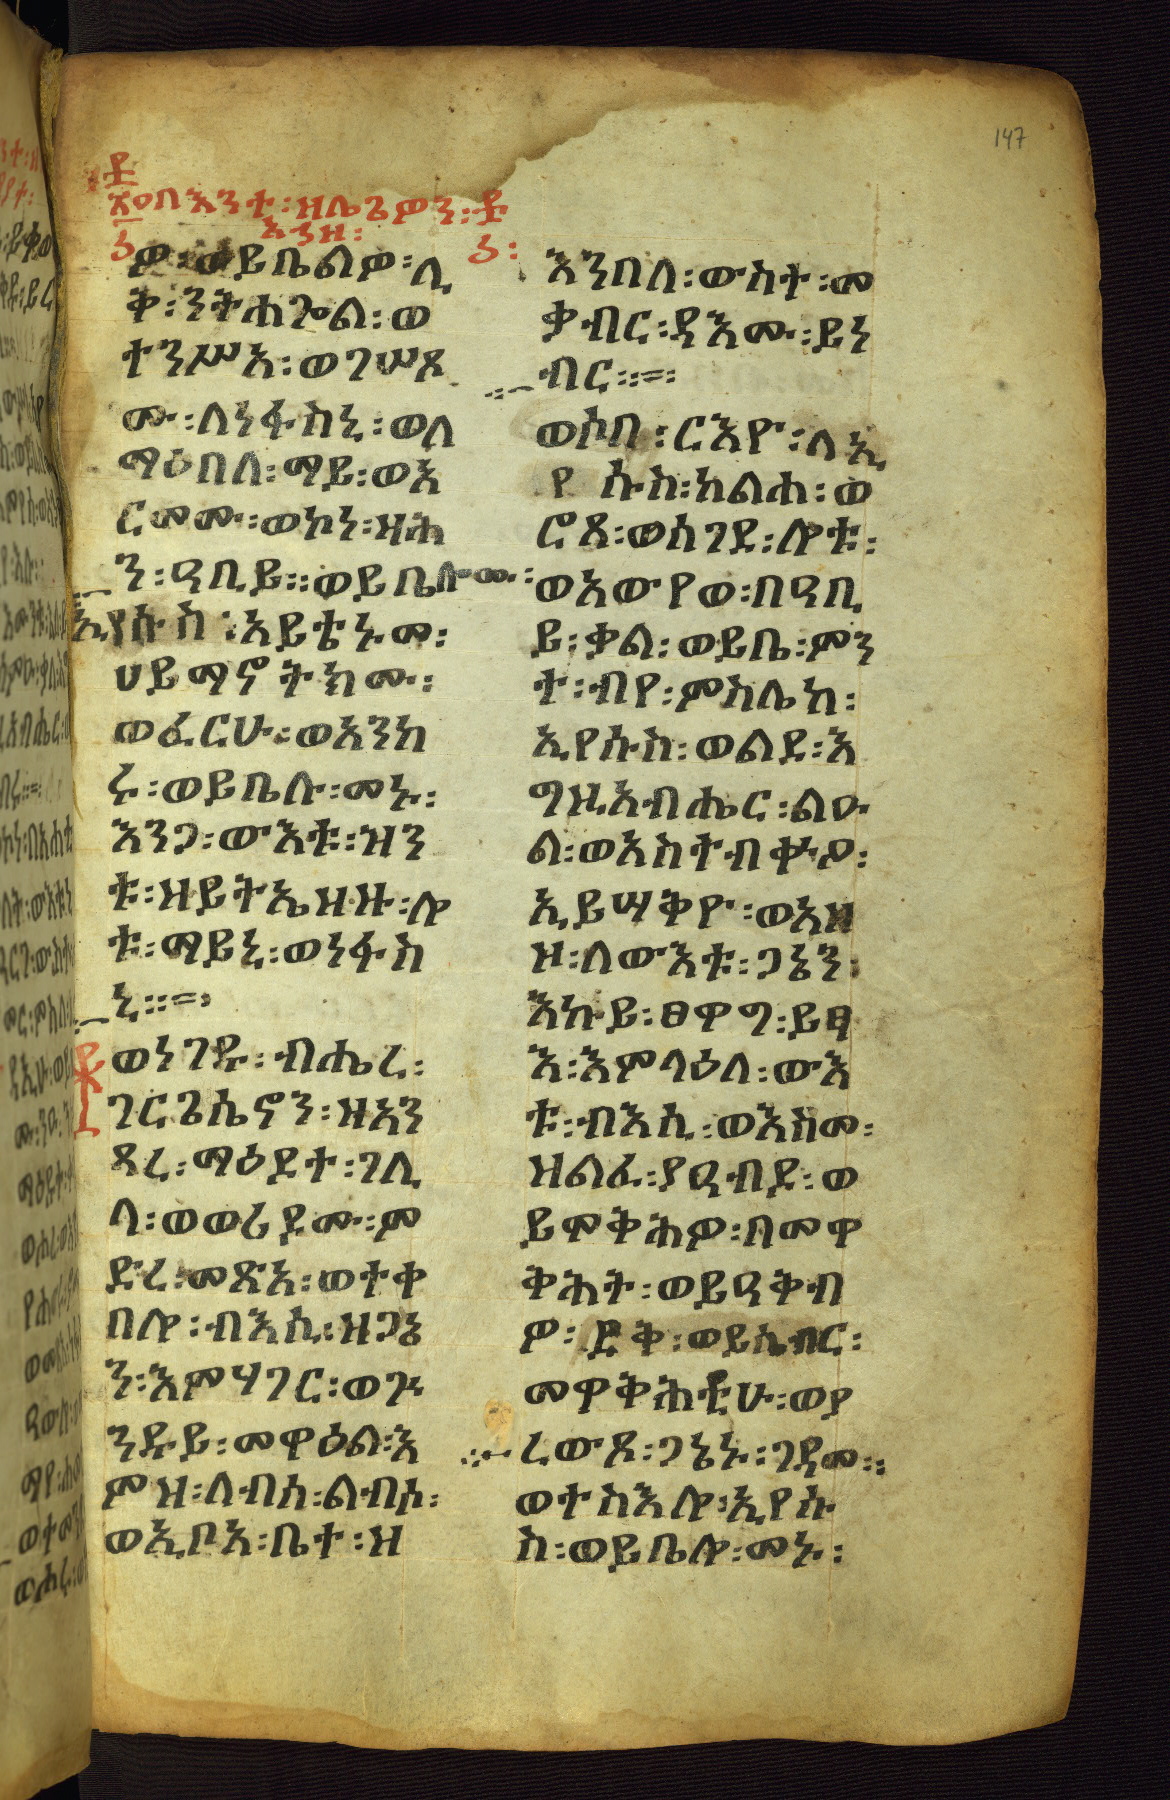 147
በእንተ፡ዘሌጌዎን፡
ዎ፡ወይቤልዎ፡ሊ
ቅ፡ንትሐጐል፡ወ
ተንሥአ፡ወገሠጾ
ሙ፡ለነፋስኒ፡ወለ
ማዕበለ፡ማይ፡ወእ
ርመሙ፡ወኮነ፡ዛሕ
ን፡ዓቢይ።ወይቤሎሙ፡
ኢየሱስ፡አይቴኑመ፡
ሀይማኖትክሙ፡
ወፈርሁ፡ወአንከ
ሩ፡ወይቤሉ፡መኑ፡
እንጋ፡ውእቱ፡ዝን
ቱ፡ዘይትኤዘዙ፡ሎ
ቱ፡ማይኒ፡ወነፋስ
ኒ።=፡
ወነገዱ፡ብሔረ፡
ገርጌሴኖን፡ዘአን
ጻረ፡ማዕደተ፡ገሊ
ላ፡ወወሪዶሙ፡ም
ድረ፡መጽአ፡ወተቀ
በሎ፡ብእሲ፡ዘጋኔ
ን፡እምሃገር፡ወጉ
ንዱይ፡መዋዕል፡እ
ምዝ፡ለብሰ፡ልብሰ፡
ወኢቦአ፡ቤተ፡ዘ
እንበለ፡ውስተ፡መ
ቃብር፡ዳእሙ፡ይነ
ብር።=፡
ወሶበ፡ርእዮ፡ለኢ
የሱስ፡ከልሐ፡ወ
ሮጸ፡ወሰገደ፡ሎቱ፡
ወአውየወ፡በዓቢ
ይ፡ቃል፡ወይቤ፡ምን
ተ፡ብየ፡ምስሌከ፡
ኢየሱስ፡ወልደ፡እ
ግዚአብሔር፡ልዑ
ል፡ወአስተብቍዖ፡
ኢይሣቅዮ፡ወአዘ
ዞ፡ለውእቱ፡ጋኔን፡
እኩይ፡ፀዋግ፡ይፃ
እ፡እምላዕለ፡ውእ
ቱ፡ብእሲ፡ወእስመ፡
ዝልፈ፡ያዔብዶ፡ወ
ይሞቅሕዎ፡በመዋ
ቅሕት፡ወይዓቅብ
ዎ፡ጽቅ፡ወይሴብር፡
መዋቅሕቲሁ፡ወያ
ረውጾ፡ጋኔኑ፡ገዳመ።
ወተስእሎ፡ኢየሱ
ስ፡ወይቤሎ፡መኑ፡